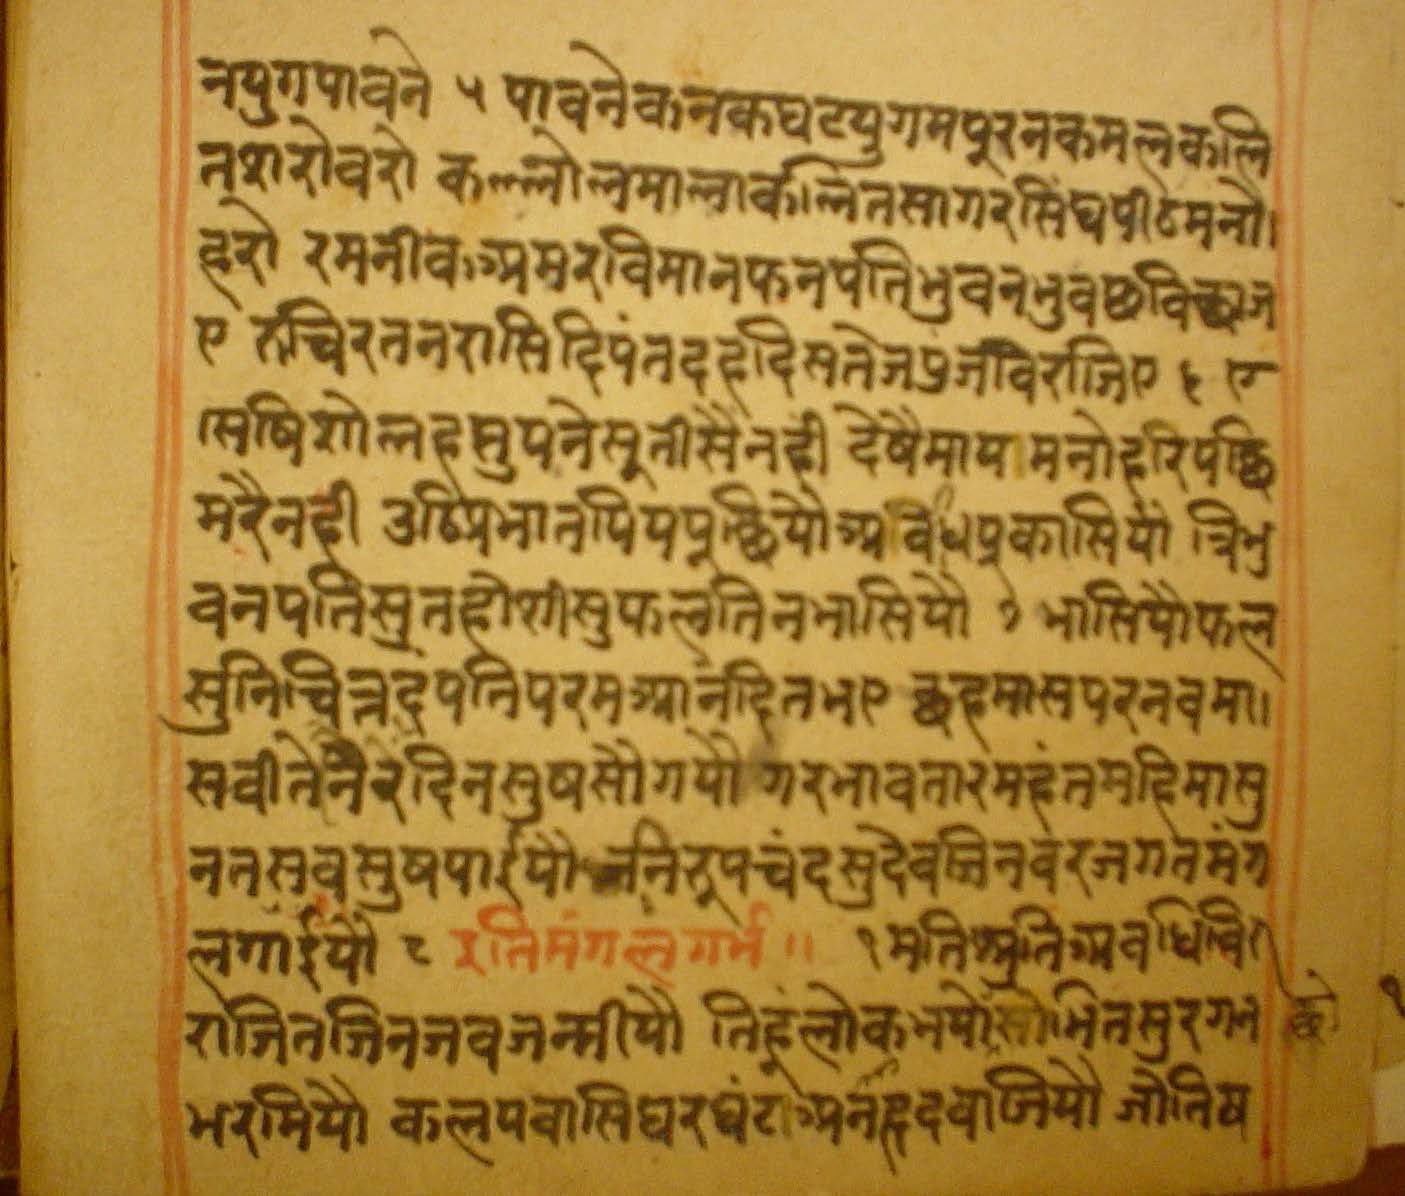 नयुगपावने ५ पावनेकनकघटयुगमपूरनकमलकलि
तशरोवरो कल्लोलमालाकलितसागरसिंघपीठमनो।
हरो रमनीकअमरविमानफनपतिभुवनभुवछविछाज
ए रुचिरतनरासिदिपंतदहदिसतेजपुंजविराजिए ६ ए
सषिशोलहसुपनेसूतीसैनही देषैमाय मनोहरिपछि
मरैनही उठिप्रभातपियपूछियौ अवधिप्रकासियौ त्रिभु
वनपतिसुतहोशीसुफलतिनभासियौ ७ भासियौफल
सुनिचित्तदंपतिपरमआनंदितभए छहमासपरनवमा।
सवीते दिनसुषसौगयौ गरभावतारमहंतमहिमासु
नतसवसुषपाईयौ रूपचंदसुदेवजिनवरजगतमंग
लगाईयौ ८ इतिमंगलगर्भ ॥ १ मतिश्रुतिअवधिवि।
राजितजिनजवजन्मीयौ तिहूंलोकभयौ सुरगन
भरमियौ कलपवासिघरघंटाअनहदवाजियौ जोतिष